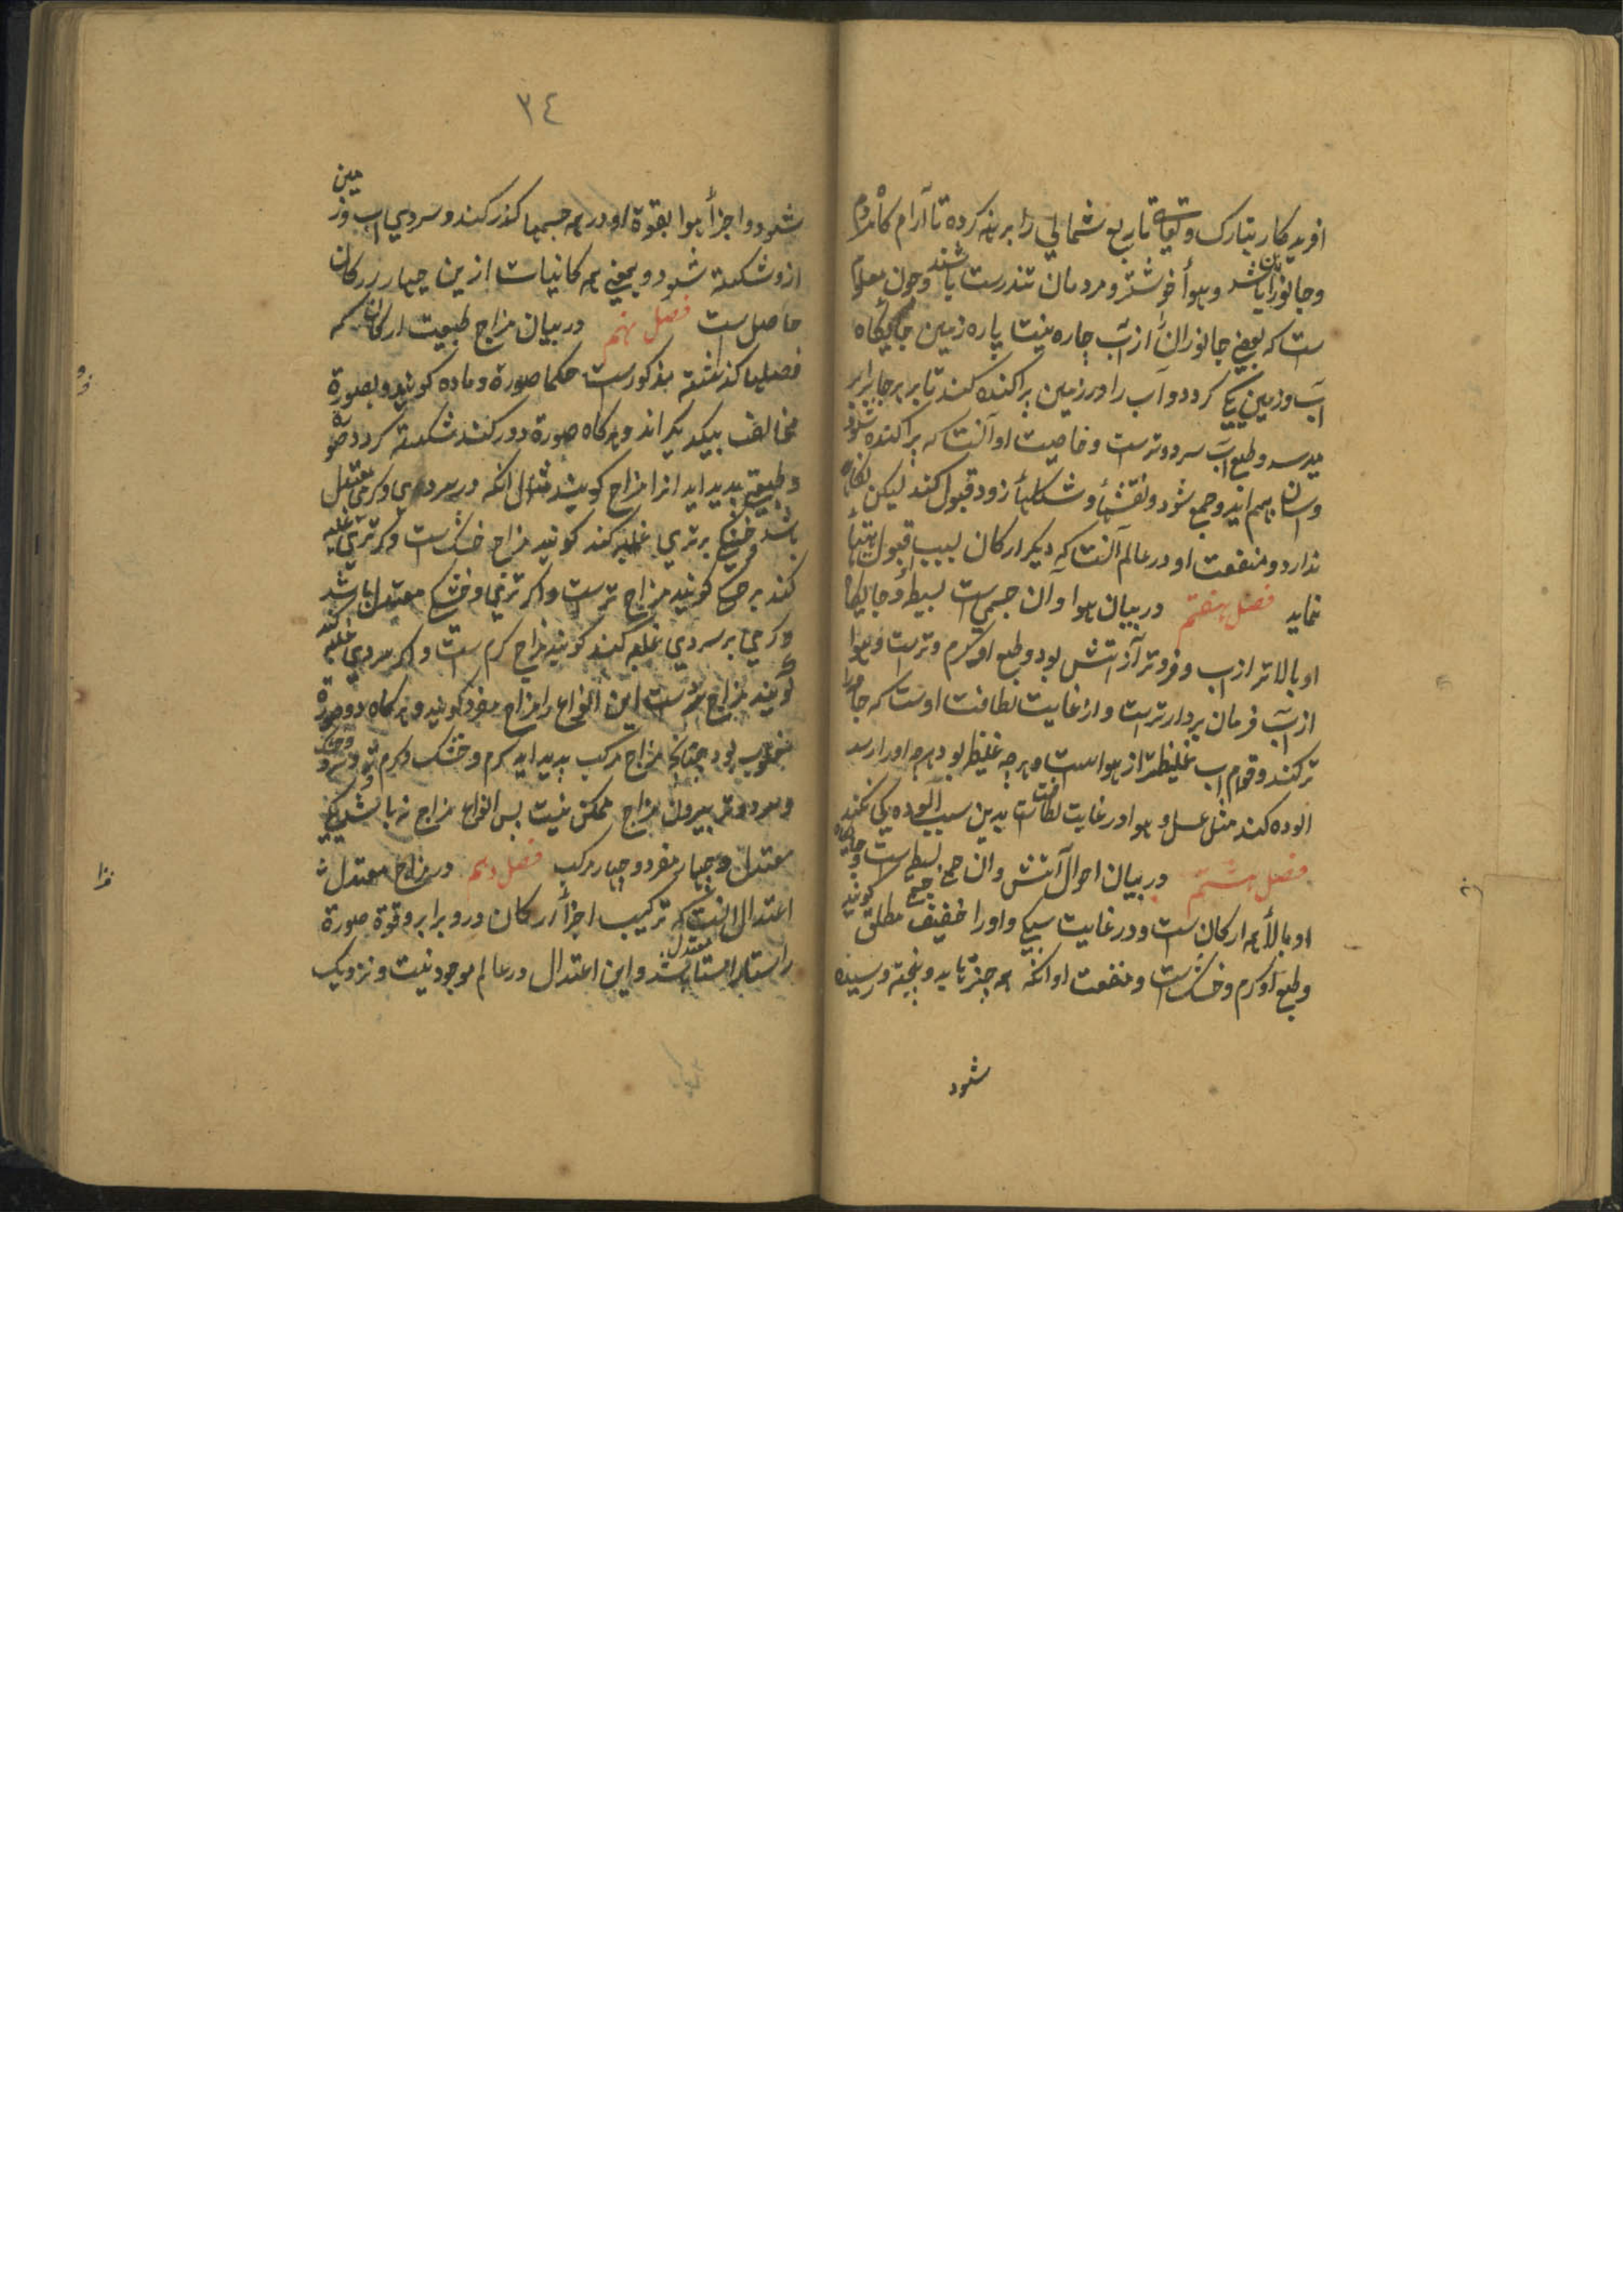 افریدکار تبارک و تعالی تا ربع شمالی را برینه کرده تا آرام کاه مردم
و جانوران باشد و هوأ خوشتر و مردمان تندرست باشند و چون معلوم
ست که بعضی جانوران از آب چاره نیست پاره زمین جایکاه
آب و زمین یکی کردد و آب را در زمین پراکنده کند تا بر هر جا برابر
میرسد و طبع آب سرد و ترست و خاصیت او آنست که پراکنده شود
و آسان بهم آید و جمع شود و نقشها و شکلها زود قبول کند لیکن نکاه
ندارد و منفعت او در عالم آنست که دیکر ارکان بسبب قبول
نماید فصل هفتم در بیان هوا و آن جسمی است بسیط و جایکاه
او بالاتر از آب و فروتر از آتش بود و طبع او کرم و ترست و هوا
از آب فرمان بردارترست و از غایت لطافت اوست که جامه را
تر کند و قوام آب غلیظتر از هواست و هرچه غلیظ بود هرچه او را رسد
الوده کند مثل عسل و هوا در غایت لطافت است بدین سبب آلوده یکی نکند
فصل هشتم در بیان احوال آتش و ان جسمی بسیط است و جایکاه
او بالأ همه ارکان ست و در غایت سبکی و او را خفیف مطلق کویند
و طبع او کرم و خشک است و منفعت او آنکه همه چیز تابد و پخته و رسیده
شود
٣٤
شود و اجزأ هوا بقوة او در همه جسمها کذر کند و سردی آب و زمین
ازو شکسته شود و یعنی همه کانیات ازین چهار ارکان
حاصل ست فصل نهم در بیان مزاج طبیعت ارکان که
فصلها کذشته مذکورست حکما صورة و ماده کویند و بصورة
مخالف یکدیکراند و هرکاه صورة دور کنند شکسته کردد صورة
و طبیعتی بدید اید انرا مزاج کویند مثال انکه در سردی و کرمی معتدل
باشد و خشکی بر تری غلبه کند کویند مزاج خشک است و کر تری غلبه
کند بر خشکی کویند مزاج ترست و اکر تری و خشکی معتدل باشد
و کرمی بر سردی غلبه کند کویند مزاج کرم ست و اکر سردی غلبه کند
کویند مزاج سردست این انواع را مزاج مفرد کویند و هرکاه دو صورة
مغلوب بود چنانچه مزاج مرکب بدید اید کرم و خشک و کرم و تر و سرد و خشک
و سرد و تر بیرون مزاج ممکن نیست بس انواع مزاج نه باشد یکی
معتدل و چهار مفرد و چهار مرکب فصل دهم در مزاج معتدل
اعتدال آنست که ترکیب اجزأ ارکان درو برابر و قوة صورة
راستاراست معتدل باشد و این اعتدال در عالم موجود نیست و نزدیک